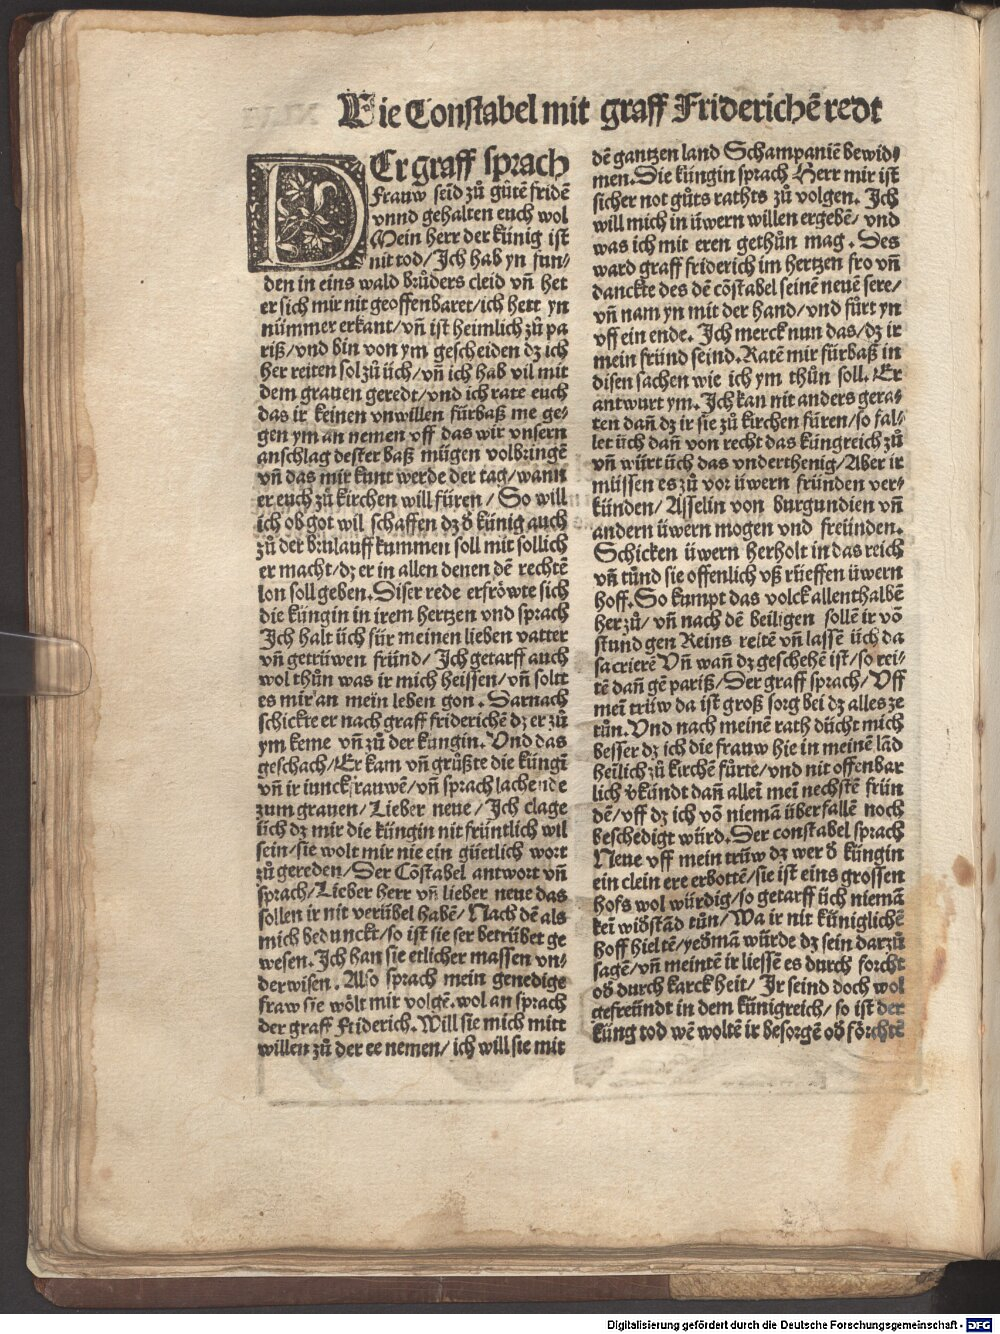 Wie Constabel mit graff Friderichē redt
DEr graff sprach
Frauw seid zů gůtē fridē
vnnd gehalten euch wol
Mein herr der künig ist
nit tod/ Ich hab yn fun/
den in eins wald brůders cleid vñ het
er sich mir nit geoffenbaret/ich hett yn
nümmer erkant/vñ ist heimlich zů pa
riß/vnd bin von ym gescheiden dz ich
her reiten sol zů üch/vñ ich hab vil mit
dem grauen geredt/vnd ich rate euch
das ir keinen vnwillen fürbaß me ge-
gen ym an nemen vff das wir vnsern
anschlag dester baß mügen volbringē
vñ das mir kunt werde der tag/wann
er euch zů kirchen will füren/ So will
ich ob got wil schaffen dz d̄ künig auch
zů der brulauff kummen soll mit sollich
er macht/dz er in allen denen dē rechtē
lon soll geben. Diser rede erfröwte sich
die küngin in irem hertzen vnd sprach
Ich halt üch für meinen lieben vatter
vñ getrüwen fründ/ Ich getarff auch
wol thůn was ir mich heissen/vñ soltt
es mir an mein leben gon. Darnach
schickte er nach graff friderichē dz er zů
ym keme vñ zů der küngin. Vnd das
geschach/Er kam vñ grůßte die küngī
vñ ir iunckfrauwē/vñ sprach lachende
zum grauen/Lieber neue/Ich clage
üch dz mir die küngin nit früntlich wil
sein/sie wolt mir nie ein güetlich wort
zů gereden/Der Cōstabel antwort vñ
sprach/Lieber herr vñ lieber neue das
sollen ir nit verübel habē/Nach dē als
mich bedunckt/so ist sie ser betrübet ge
wesen. Ich han sie etlicher massen vn-
derwisen. Also sprach mein genedige
fraw sie wölt mir volgē. wol an sprach
der graff Friderich. Will sie mich mitt
willen zů der ee nemen/ich will sie mit
dē gantzen land Schampaniē bewid/
men. Die küngin sprach Herr mir ist
sicher not gůts rathts zů volgen. Ich
will mich in üwern willen ergebē/vnd
was ich mit eren gethůn mag. Des
ward graff friderich im hertzen fro vñ
danckte des dē cōstabel seinē neuē sere/
vñ nam yn mit der hand/vnd fůrt yn
vff ein ende. Ich merck nun das/dz ir
mein fründ seind. Ratē mir fürbaß in
disen sachen wie ich ym thůn soll. Er
antwurt ym. Ich kan nit anders gera-
ten dañ dz ir sie zů kirchen füren/so fal-
let üch dañ von recht das küngreich zů
vñ würt üch das vnderthenig/Aber ir
müssen es zů vor üwern fründen ver-
künden/Asselin von burgundien vñ
andern üwern mogen vnd freünden.
Schicken üwern herholt in das reich
vñ tůnd sie offenlich vß rüeffen üwern
hoff. So kumpt das volck allenthalbē
her zů/vñ nach dē heiligen sollē ir vō
stund gen Reins reitē vñ lassē üch da
sacrierē Vñ wañ dz geschehē ist/so rei-
tē dañ gē pariß/Der graff sprach/Vff
meī trüw da ist groß sorg bei dz alles ze
tůn. Vnd nach meinē rath dücht mich
besser dz ich die frauw hie in meinē lād
heīlich zů kirchē fůrte/vnd nit offenbar
lich v̄kündt dañ alleī meī nechstē frün
dē/vff dz ich vō niemā überfallē noch
beschedigt würd. Der constabel sprach
Neue vff mein trüw dz wer d̄ küngin
ein clein ere erbottē/sie ist eins grossen
hofs wol würdig/so getarff üch niemā
keī wid̄stād tůn/Wa ir nit küniglichē
hoff hieltē/yed̄mā würde dz sein darzů
sagē/vñ meintē ir liessē es durch forcht
od̄ durch karckheit/ Ir seind doch wol
gefreündt in dem künigreich/so ist der
küng tod wē woltē ir besorgē od̄ förchtē
Digitalisierung gefördert durch die Deutsche Forschungsgemeinschaft - DFG